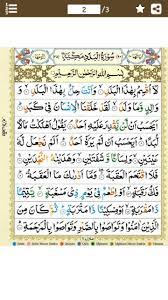 2 /3
سُوْرَةُ الْبَلَدِ مَكِّيَّةٌ
بِسْمِ اللّٰهِ الرَّحْمٰنِ الرَّحِيْمِ
لَاۤ اُقْسِمُ بِهٰذَا الْبَلَدِ وَاَنْتَ حِلٌّۢ بِهٰذَا الْبَلَدِ وَ
وَالِدٍ وَّمَا وَلَدَ لَقَدْ خَلَقْنَا الْاِنْسَانَ فِيْ كَبَدٍ
اَيَحْسَبُ اَنْ لَّنْ يَّقْدِرَ عَلَيْهِ اَحَدٌ يَقُوْلُ اَهْلَكْتُ مَالًا
لُّبَدًا اَيَحْسَبُ اَنْ لَّمْ يَرَهٗۤ اَحَدٌ اَلَمْ نَجْعَلْ لَّهٗ
عَيْنَيْنِ وَلِسَانًا وَّشَفَتَيْنِ وَهَدَيْنٰهُ النَّجْدَيْنِ فَلَا
اقْتَحَمَ الْعَقَبَةَ وَمَاۤ اَدْرٰىكَ مَا الْعَقَبَةُ فَكُّ رَقَبَةٍ
اَوْ اِطْعٰمٌ فِيْ يَوْمٍ ذِيْ مَسْغَبَةٍ يَّتِيْمًا ذَا
مَقْرَبَةٍ اَوْ مِسْكِيْنًا ذَا مَتْرَبَةٍ ثُمَّ كَانَ مِنَ
الَّذِيْنَ اٰمَنُوْا وَتَوَاصَوْا بِالصَّبْرِ وَتَوَاصَوْا بِالْمَرْحَمَةِ